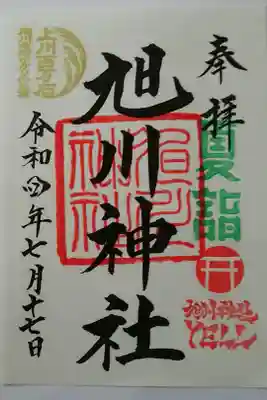 奉拝
夏詣
旭川神社
旭川神社
YELL
上川百万石
令和四年七月十七日